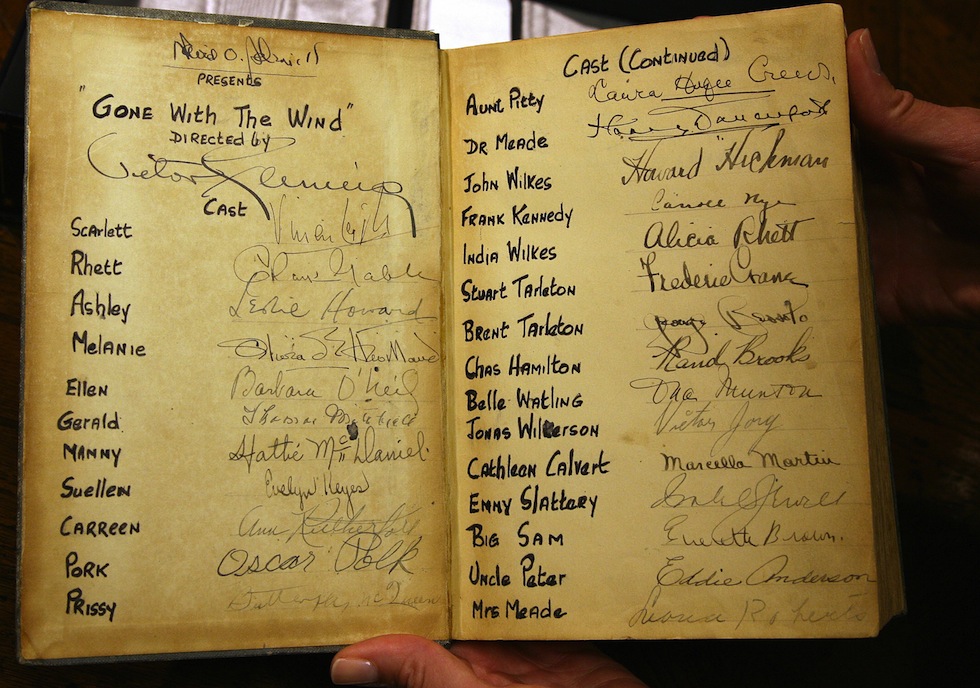 David O. Selznick
PRESENTS
"GONE WITH THE WIND"
DIRECTED by
Victor Fleming
CAST
Scarlett Vivien Leigh
Rhett Clark Gable
Ashley Leslie Howard
Melanie Olivia de Havilland
Ellen Barbara O'Neil
Gerald Thomas Mitchell
MANNY Hattie McDaniel
Suellen Evelyn Keyes
CARREEN Ann Rutherford
PORK Oscar Polk
PRISSY Butterfly McQueen
CAST (CONTINUED)
AUNT PITTY Laura Hope Crews.
DR MEADE Harry Davenport
JOHN WILKES Howard Hickman
FRANK KENNEDY Carroll Nye
INDIA WILKES Alicia Rhett
STUART TARLETON Frederic Crane
BRENT TARLETON George Bessolo
CHAS HAMILTON Rand Brooks
BELLE WATLING Ona Munson
JONAS WILKERSON Victor Jory
CATHLEEN CALVERT Marcella Martin
EMMY SLATTERY Isabel Jewell
BIG SAM Everett Brown.
UNCLE PETER Eddie Anderson
MRS MEADE Leona Roberts